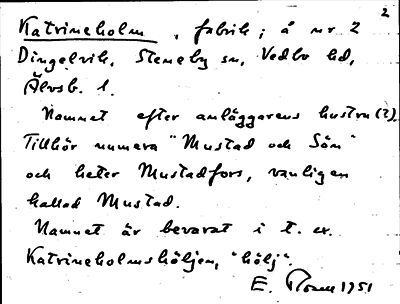 2
Katrineholm, fabrik; å nr 2
Dingelvik, Steneby sn, Vedbo hd,
Älvsb. l.
Namnet efter anläggarens hustru (?).
Tillhör numera "Mustad och Sön"
och heter Mustadfors, vanligen
kallad Mustad.
Namnet är bevarat i t. ex.
Katrineholmshöljen, "hölj".
E. 1951